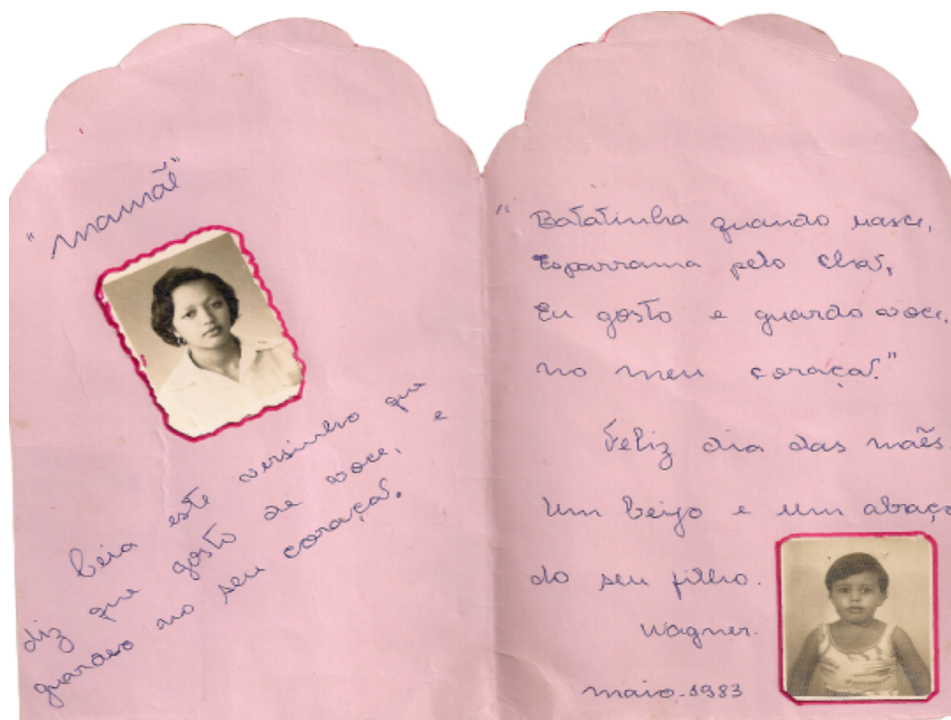 "mamãe"
Leia este versinho que
diz que gosto de voce, e
guardo no seu coração.
"Batatinha quando nasce,
Esparrama pelo chão,
Eu gosto e guardo voce,
no meu coração."
Feliz dia das mães
Um beijo e um abraço
do seu filho.
Wagner.
maio-1983